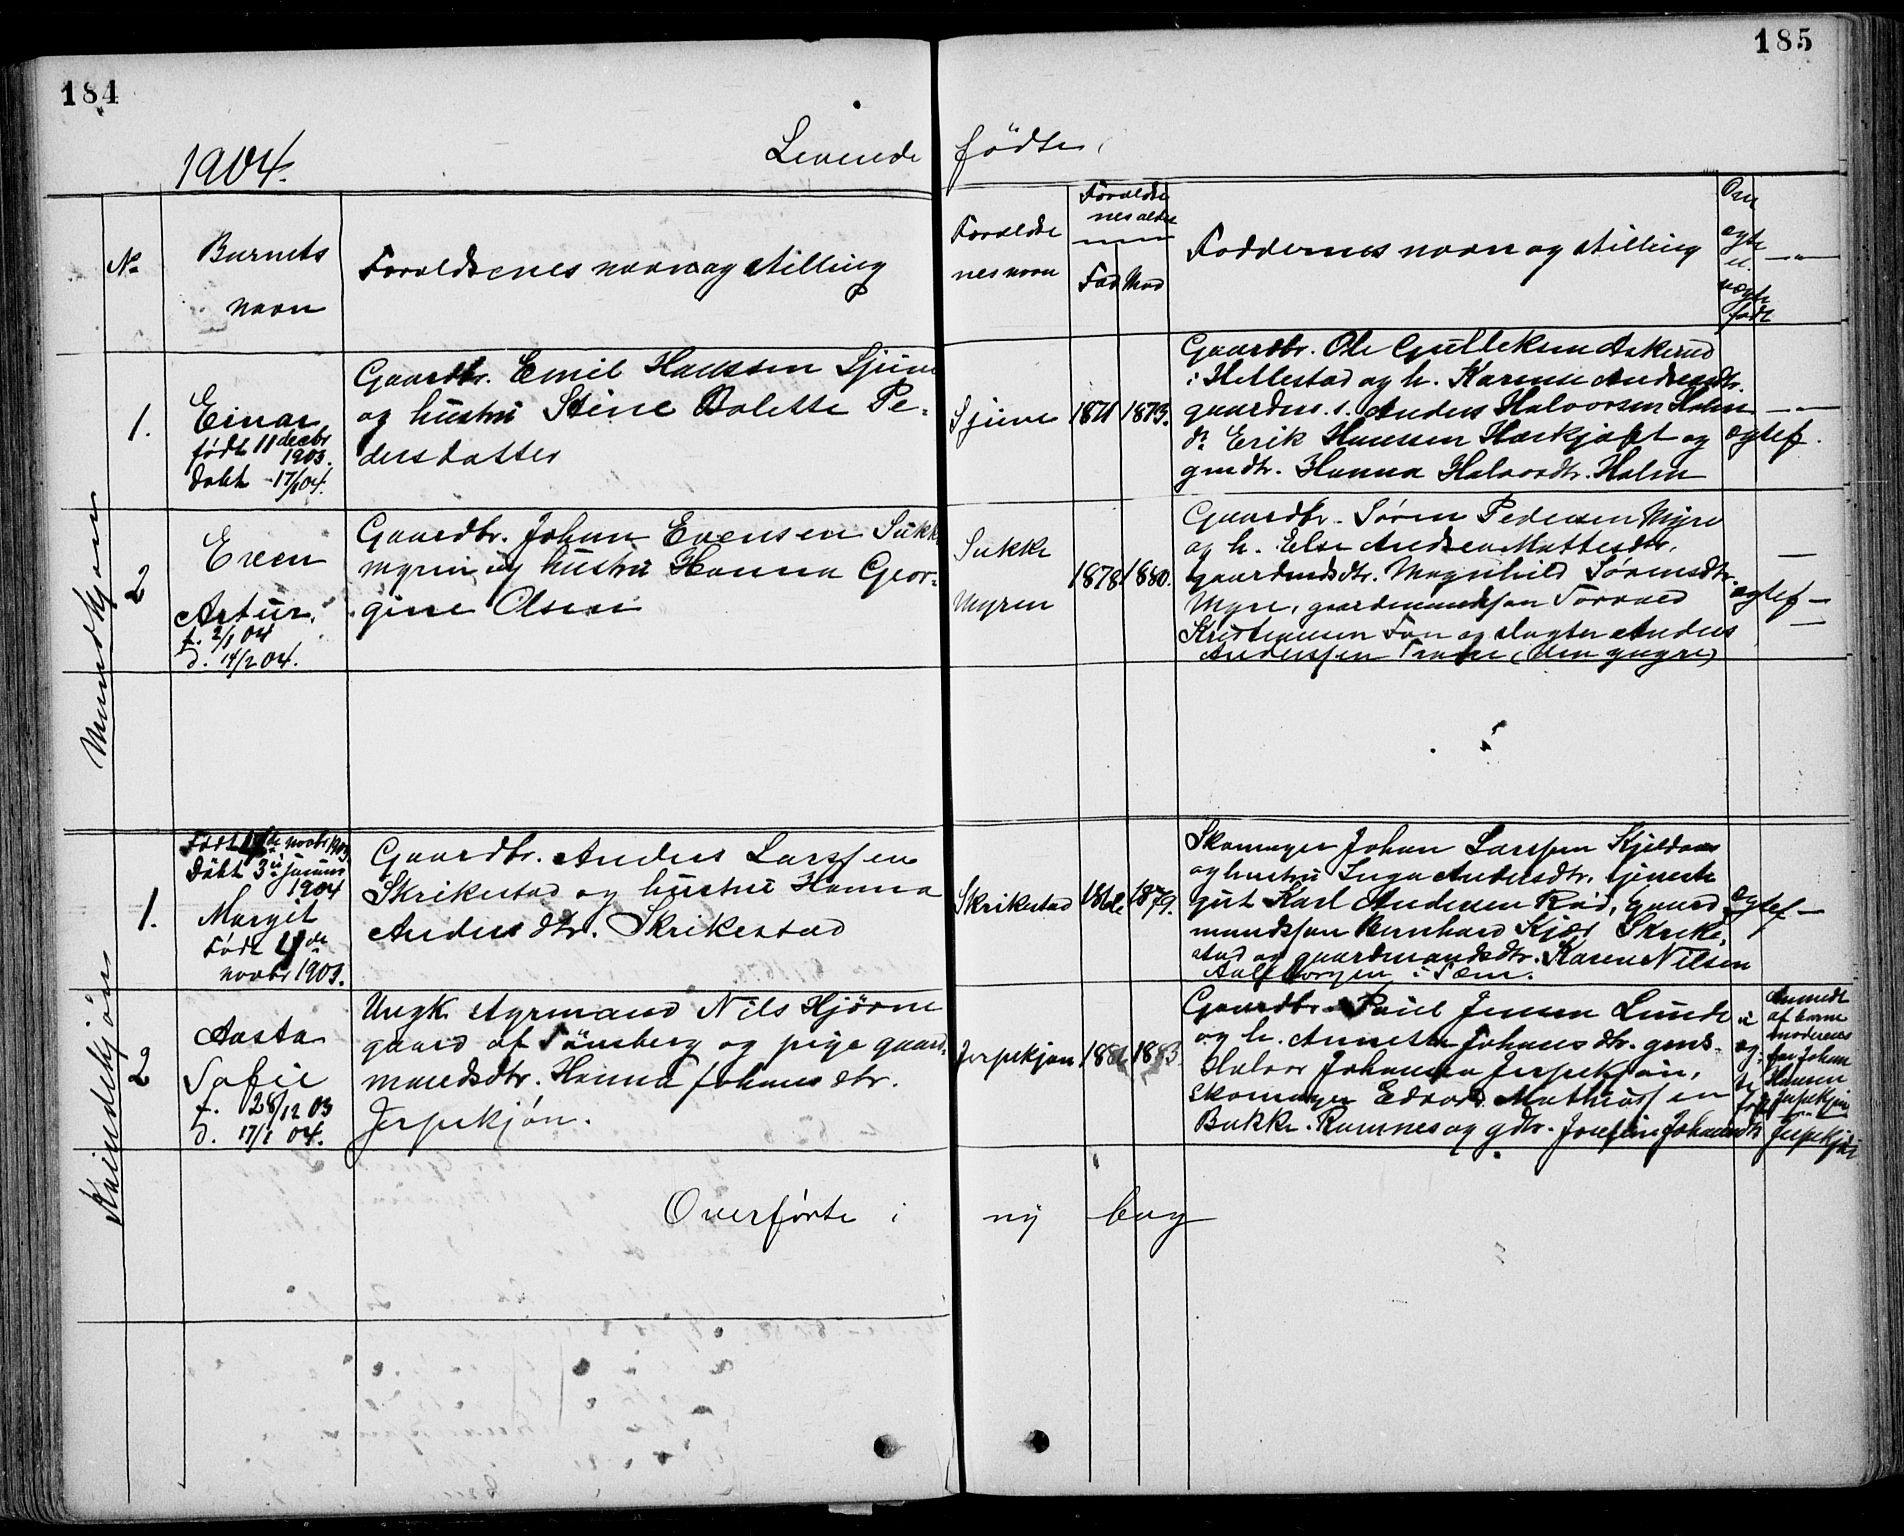 184
185
1904.
Levende fødte
No
Barnets
navn
Foreldrenes navn og stilling
Foreldre
nes navn
Foreldre
nes alder
Fad Mod
Faddernes navn og stilling
Om
ægte
el.
uægte
født
Mandkjøn
1.
Einar
født 11 decbr
1903.
Døbt 17/1 04.
Gaardbr. Emil Hanssen Sjue
og hustru Stine Bolette Pe-
dersdatter
Sjuve
1871
1873.
Gaardbr. Ole Gulleksen Askerud
i Hillestad og h. Karense Andreasdtr.
gaardms. s. Anders Halvorsen Holm
do Erik Hanssen Hærkjøbt og
gmdtr. Hanna Halvordtr. Holm
egtef.
2
Even
Artur.
f. 2/1 04
d. 14/2 04.
Gaardbr. Johan Evensen Sukk
myrin og hustru Hanna Geor-
gine Olsen
Sukke
myren
1878
1880.
Gaardbr. Søren Pedersen Myre
og h. Else Andrea Mattisdtr.
gaardmdsdtr. Magnhild Sørensdtr.
Myre, gaardmandsøn Torvald
Kristiansen Fon og slagter Anders
Anderssen Trane (den yngre)
egtef
Kvindekjøn
1.
Født 4de novbr 1903
Døbt 3 januar
1904
Margit
Født 4de
novbr 1903.
Gaardbr. Anders Larssen
Skrikestad og hustru Hanna
Andersdtr. Skrikestad
Skrikestad
1879.
Skomager Johan Larssen Kjeldaas
og hustru Inga Andersdtr, tjeneste
gut Karl Andersen Rød, gaard
mandssøn Bernhard Kjær Skrike,
stad og gaardmandsdtr. Karen Nilsen
i Sem.
egtef
2
Aasta
Sofie
f. 28/12 03
d. 17/1 04.
Ungk. Agrmand Nils Hjørne
gaard af Tønsberg og pige gaard-
mandsdtr. Hanna Johansdtr.
Jerpekjøn.
Jerpekjøn
1883
Gaardbr. Paul Jensen Lunde
og h. Annette Johansdtr. gms.
Halvor Johansen Jerpekjøn,
skomager Edvard Mathiassen
Bakke. Ramnes og gdtr. Josefine Johansdtr
Jerpekjøn
u
eg
te
født
Anmeldt
af barne
moderens
far Johan
Hansen
Jerpekjøn
Overførte i ny bog